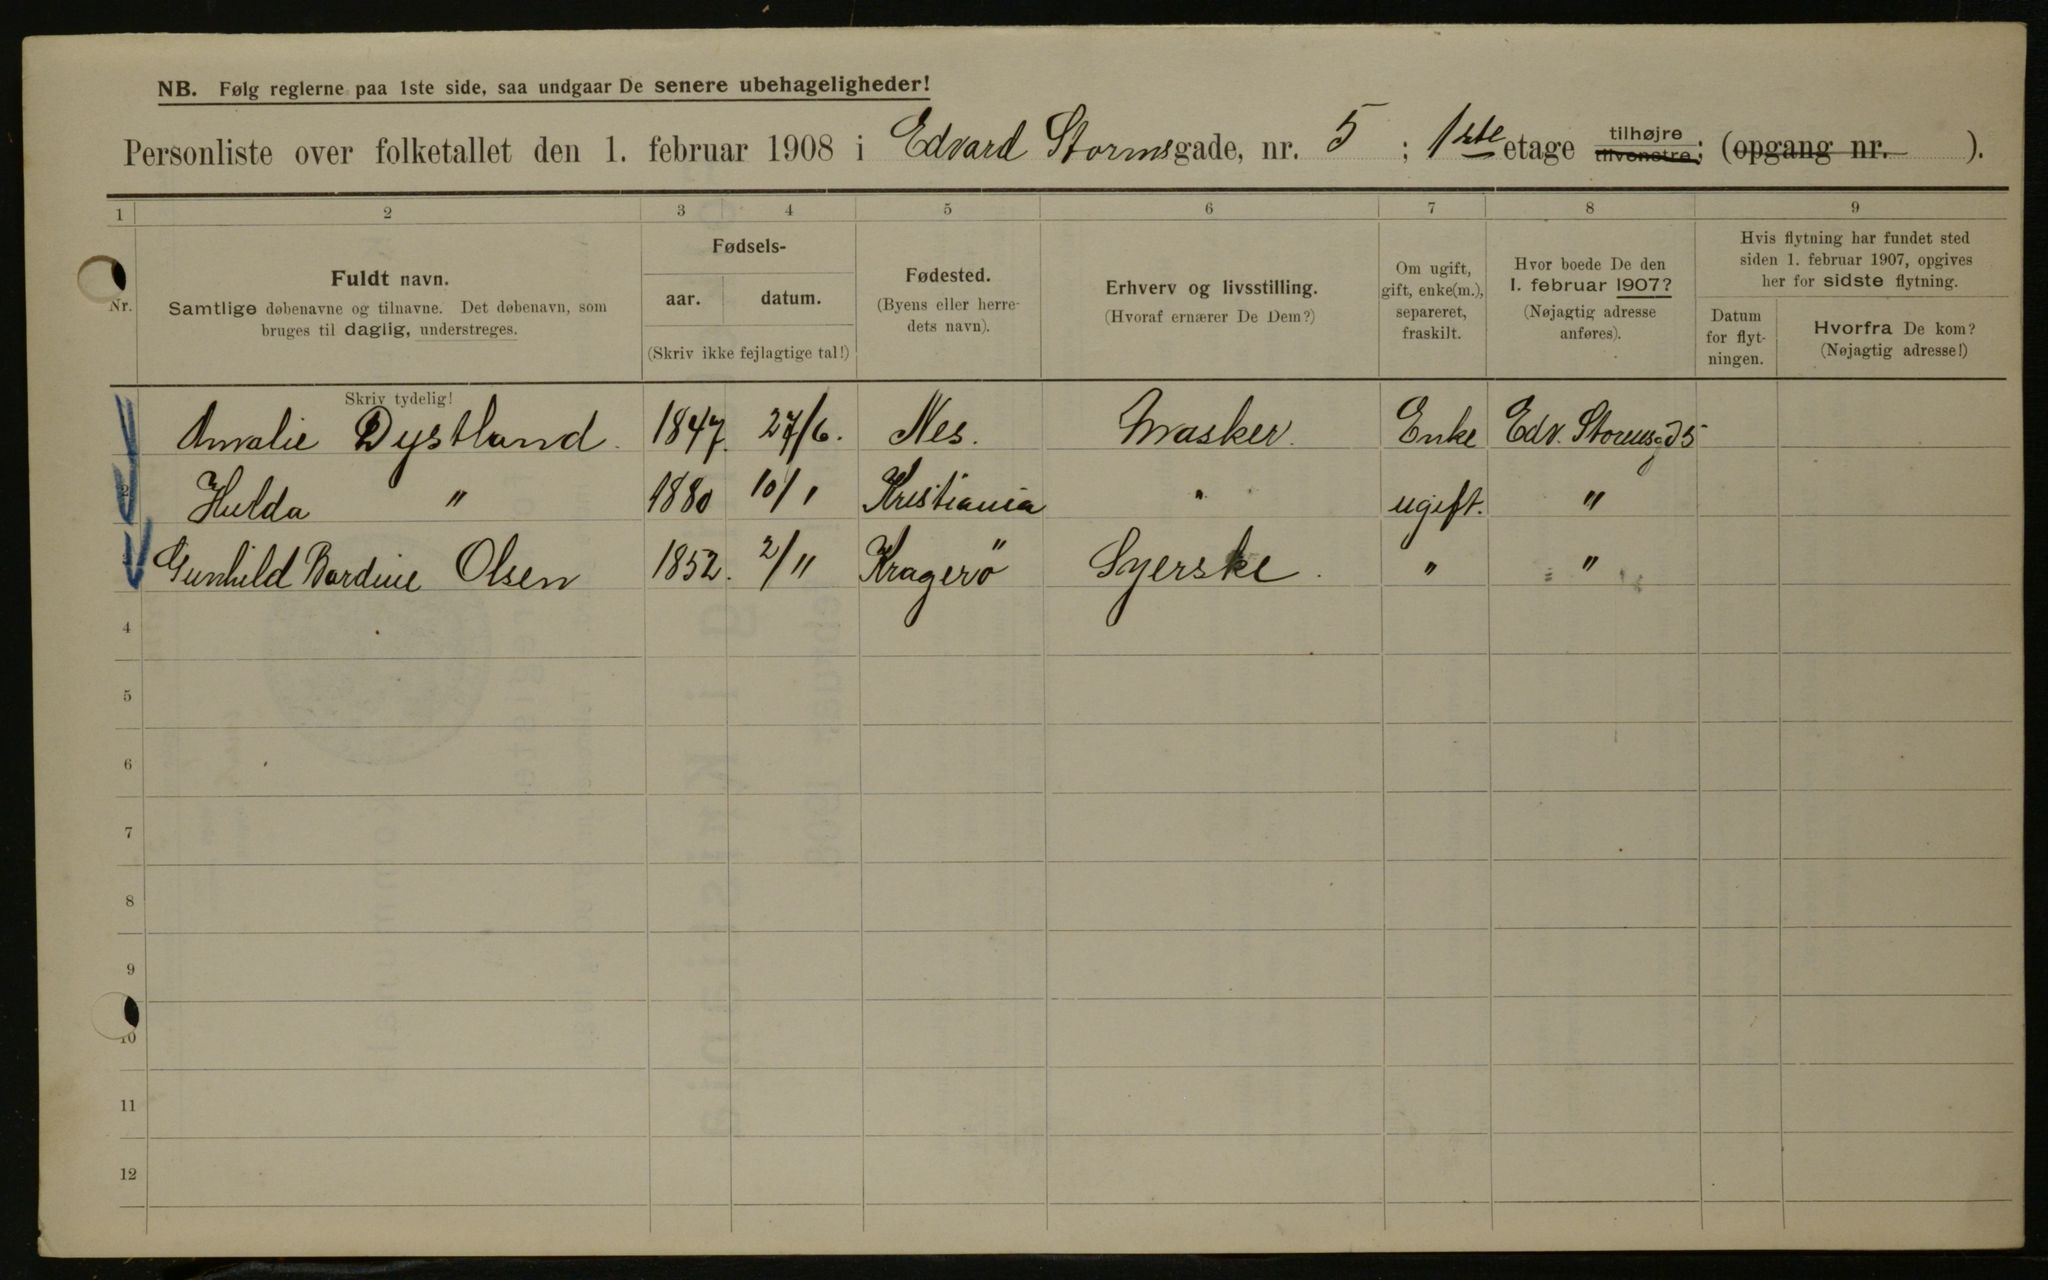 NB. Følg reglerne paa 1ste side, saa undgaar De senere ubehageligheder!
Personliste over folketallet den 1. februar 1908 i Edvard Stormsgade, nr. 5 ; 1ste etage tilhøjre tilvenstre; (opgang nr. ).
1 2 3 4 5 6 7 8 9
Nr.
Fuldt navn.
Samtlige døbenavne og tilnavne. Det døbenavn, som
bruges til daglig, understreges.
Fødsels-
aar. datum.
(Skriv ikke fejlagtige tal!)
Fødested.
(Byens eller herre-
dets navn).
Erhverv og livsstilling.
(Hvoraf ernærer De Dem?)
Om ugift,
gift, enke(m.),
separeret,
fraskilt.
Hvor boede De den
1. februar 1907?
(Nøjagtig adresse
anføres).
Hvis flytning har fundet sted
siden 1. februar 1907, opgives
her for sidste flytning.
Datum
for flyt-
ningen.
Hvorfra De kom?
(Nøjagtig adresse!)
Skriv tydelig!
Amalie Dystland. 1847. 27/6. Nes. Masker. Enke Edv. Stormsgd 5
2 Hulda " 1880 10/1 Kristiania " ugift. "
Gunhild Bardine Olsen 1852. 2/11 Kragerö Syerske. " "
4
5
6
7
8
9
10
11
12